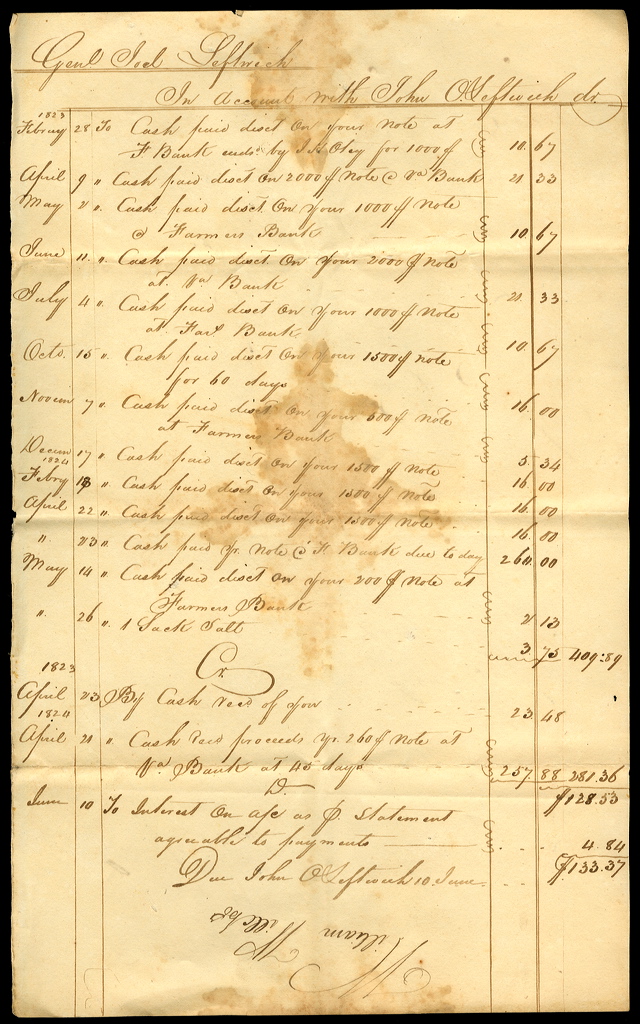 Genl Joel Leftwich
In account with John O. Leftwich dr.
1823
Febuay 28 To Cash paid disct On your Note at
F Bank ends. by J. H. Otey for 1000$ 10. 67
April 9 " Cash paid disct On 2000$ Note @ Va Bank 21 33
May 2 " Cash paid disct. On your 1000$ Note
@ Farmers Bank 10. 67
June 11. " Cash paid disct. On your 2000$ Note
at Va Bank 21. 33
July 4 " Cash paid disct On your 1000$ Note
at Fars Bank 10. 67
Octo. 15 " Cash paid disct On your 1500$ Note
for 60 days 16. 00
Novem 7 " Cash paid disct On your 500$ Note
at Farmers Bank 5. 34
Decem 17 " Cash paid disct On your 1500$ Note 16. 00
1824
Febry 18 " Cash paid disct On your 1500$ Note 16. 00
April 22 " Cash paid disct On your 1500$ Note 16. 00
" 23 " Cash paid yr. Note @ F. Bank due to day 260. 00
May 14 " Cash paid disct On your 200$ Note at
Farmers Bank 2 13
" 26 " 1 Sack Salt 3. 75 409:89
Cr.
1823
April 23 By Cash recd of you 23. 48
1824
April 21 " Cash recd proceeds yr. 260$ Note at
Va Bank at 45 days 257. 88 281.36
D. $128.53
June 10 To Interest On a/c as p. Statement
agreeable to payments 4.84
Due John O. Leftwich 10. June. $133.37
William